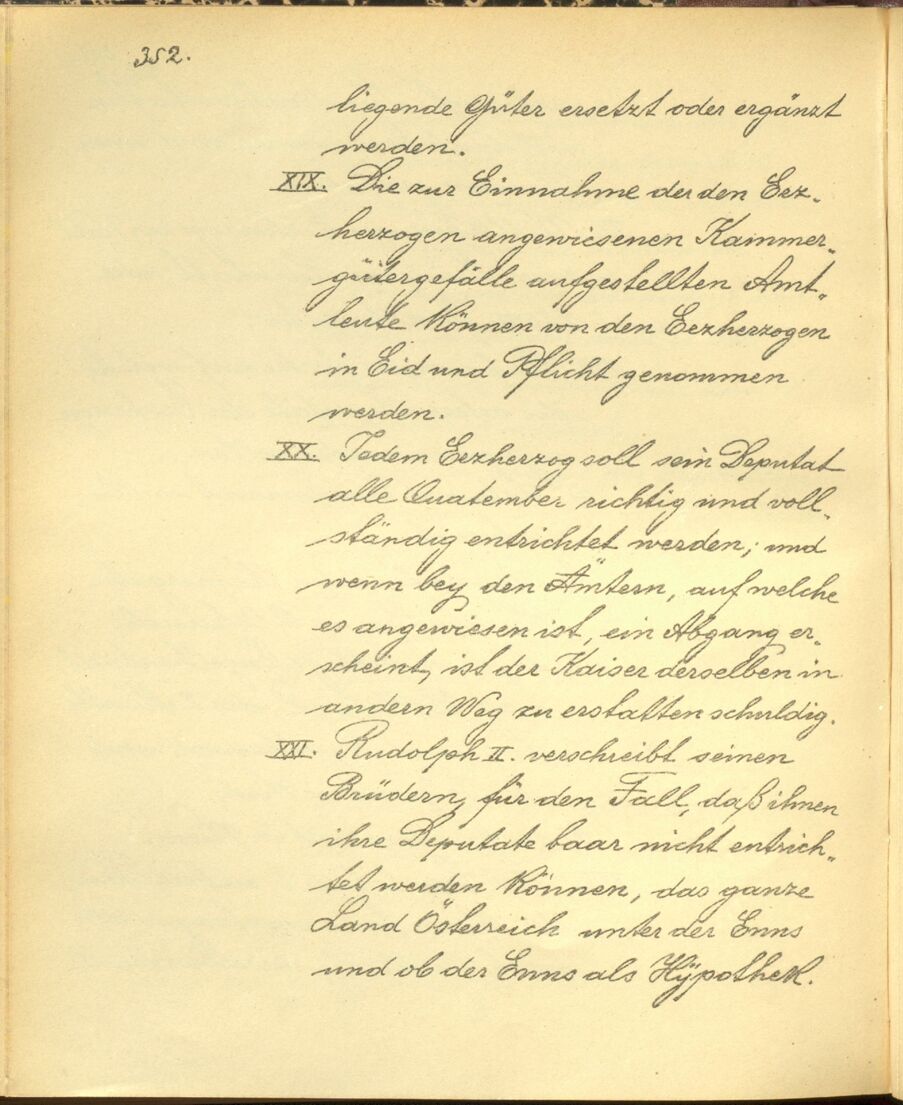 352.
liegende Güter ersetzt oder ergänzt
werden.
XIX. Die zur Einnahme der den Erz-
herzogen angewiesenen Kammer-
gütergefälle aufgestellten Amt-
leute können von den Erzherzogen
in Eid und Pflicht genommen
werden.
XX. Jedem Erzherzog soll sein Deputat
alle Quatember richtig und voll-
ständig entrichtet werden; und
wenn bey den Ämtern, auf welche
es angewiesen ist, ein Abgang er-
scheint, ist der Kaiser derselben in
andern Weg zu erstatten schuldig.
XXI. Rudolph II. verschreibt seinen
Brüdern, für den Fall, daß ihnen
ihre Deputate baar nicht entrich-
tet werden können, das ganze
Land Österreich unter der Enns
und ob der Enns als Hÿpothek.